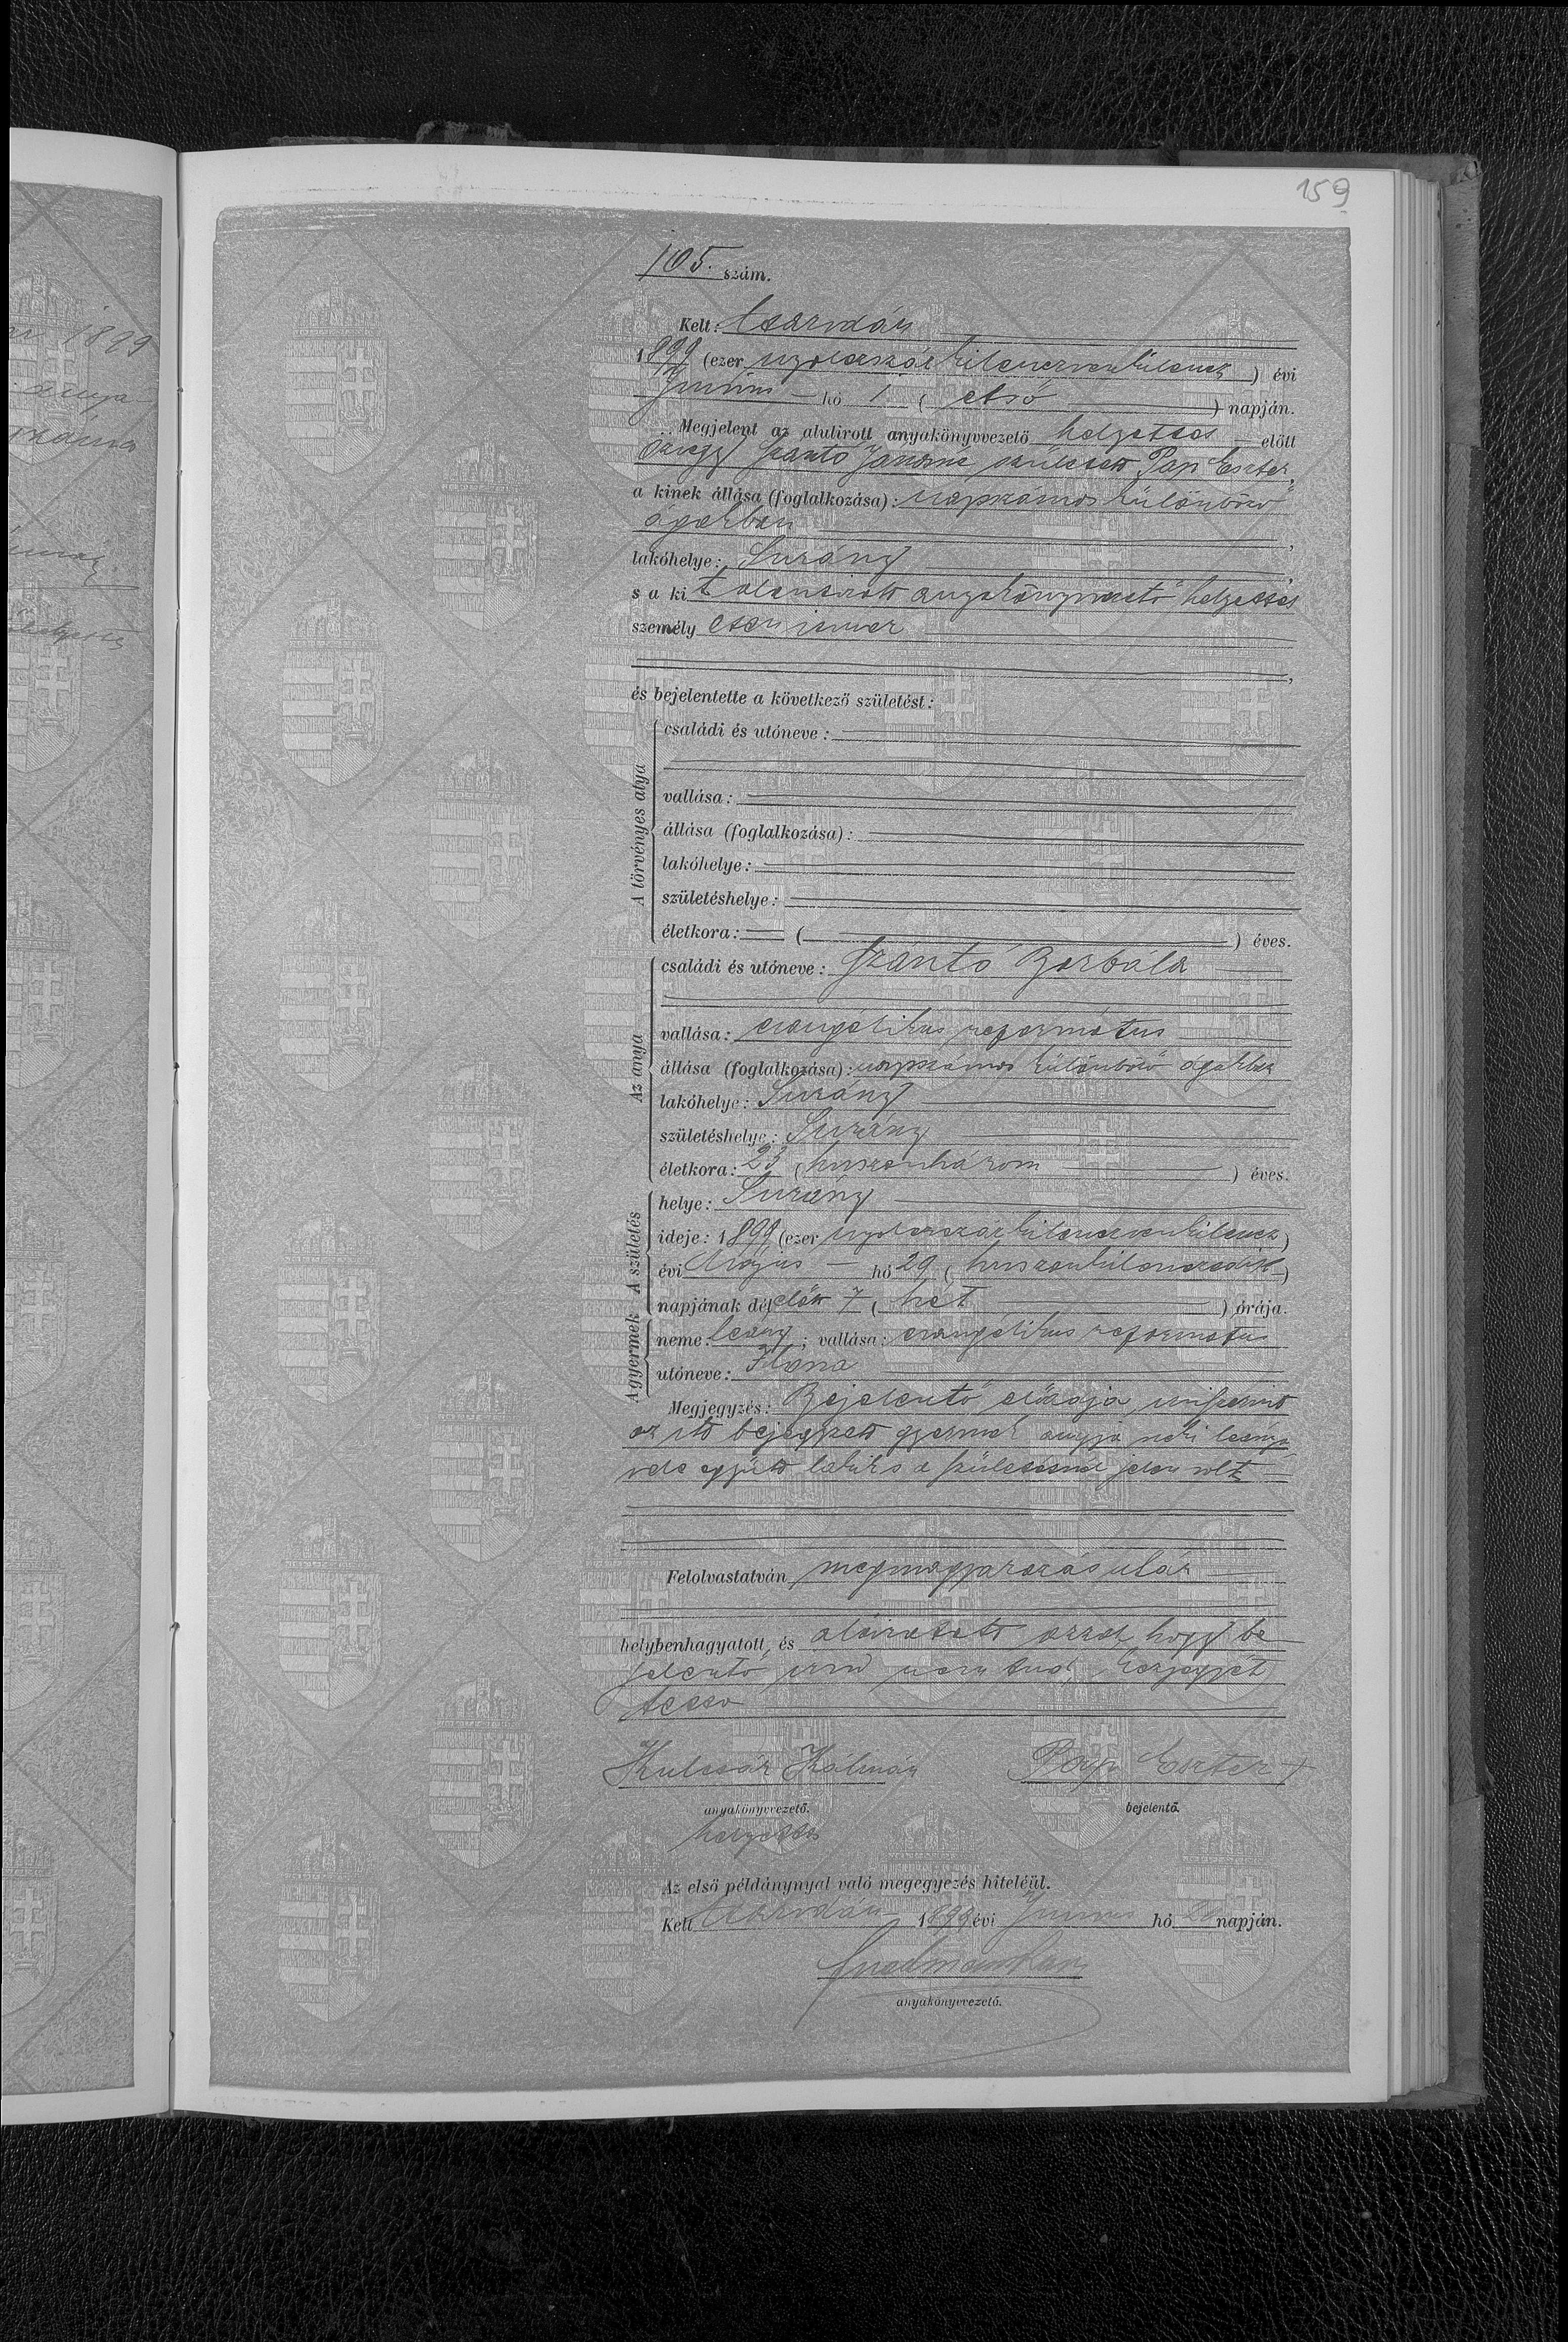 159
105. szám.
Kelt: Csarodán
1899 (ezer nyolczszázkilenczvenkilencz) évi
Junius hó 1 (első) napján.
Megjelent az alulirott anyakönyvvezető helyettes előtt
özvegy Szántó Jánosné született Pap Eszter,
a kinek állása (foglalkozása): napszámos különböző
ágakban,
lakóhelye: Surány,
s a kit alantirott anyakönyvvezető helyettes
személyesen ismer
és bejelentette a következő születést:
A törvényes atya
családi és utóneve:
vallása:
állása (foglalkozása):
lakóhelye:
születéshelye:
életkora: ( ) éves.
Az anya
családi és utóneve: Szántó Borbála
vallása: evangélikus református
állása (foglalkozása): napszámos különböző ágakban
lakóhelye: Surány
születéshelye: Surány
életkora: 23 (huszonhárom) éves.
A születés
helye: Surány
ideje: 1899 (ezer nyolczszázkilenczvenkilencz)
évi Május hó 29 (huszonkilenczedik)
napjának délelőtt 7 (hét) órája.
A gyermek
neme: leány; vallása: evangélikus református
utóneve: Ilona
Megjegyzés: Bejelentő előadja, miszerint
az itt bejegyzett gyermek anyja neki leánya
vele együtt lakik s a születésnél jelen volt
Felolvastatván, megmagyarázás után
helybenhagyatott, és aláiratott azzal, hogy be
jelentő irni nem tud, kézjegyét
tette
Kulcsár Kálmán Pap Eszter +
anyakönyvvezető. bejelentő.
helyettes
Az első példánynyal való megegyezés hiteléül.
Kelt Csarodán 1899 évi Junius hó napján.
anyakönyvvezető.
1899